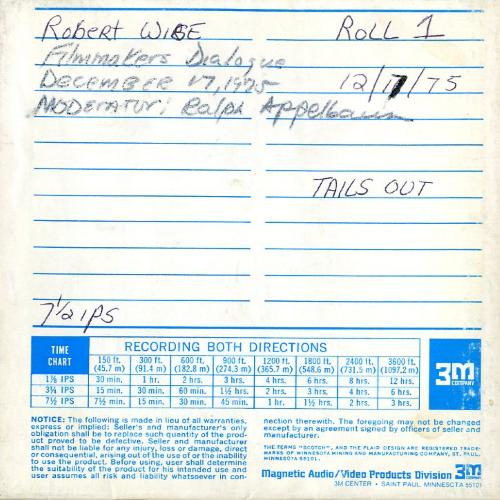 Robert WISE
Filmmakers Dialogue
December 17, 1975
Moderator: Ralph Appelbaum
ROLL 1
12/17/75
TAILS OUT
7½ IPS
TIME CHART
RECORDING BOTH DIRECTIONS
150 ft. (45.7 m) 300 ft. (91.4 m) 600 ft. (182.8 m) 900 ft. (274.3 m) 1200 ft. (365.7 m) 1800 ft. (548.6 m) 2400 ft. (731.5 m) 3600 ft. (1097.2 m)
1⅞ IPS 30 min. 1 hr. 2 hrs. 3 hrs. 4 hrs. 6 hrs. 8 hrs. 12 hrs.
3¾ IPS 15 min. 30 min. 60 min. 1½ hrs. 2 hrs. 3 hrs. 4 hrs. 6 hrs.
7½ IPS 7½ min. 15 min. 30 min. 45 min. 1 hr. 1½ hrs. 2 hrs. 3 hrs.
3M COMPANY
NOTICE: The following is made in lieu of all warranties,
express or implied: Seller's and manufacturer's only
obligation shall be to replace such quantity of the prod-
uct proved to be defective. Seller and manufacturer
shall not be liable for any injury, loss or damage, direct
or consequential, arising out of the use of or the inability
to use the product. Before using, user shall determine
the suitability of the product for his intended use and
user assumes all risk and liability whatsoever in con-
nection therewith. The foregoing may not be changed
except by an agreement signed by officers of seller and
manufacturer.
THE TERMS "SCOTCH", AND THE PLAID DESIGN ARE REGISTERED TRADE-
MARKS OF MINNESOTA MINING AND MANUFACTURING COMPANY, ST. PAUL,
MINNESOTA 55101.
Magnetic Audio/Video Products Division 3M COMPANY
3M CENTER • SAINT PAUL, MINNESOTA 55101